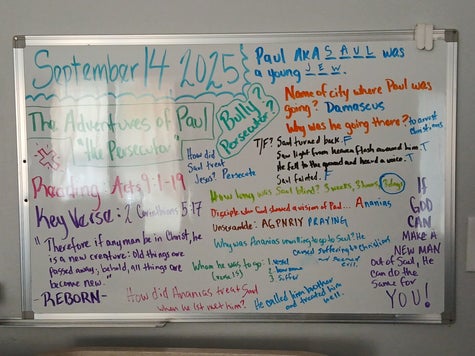 September 14 2025
The Adventures of Paul
"the Persecutor"
Bully?
Persecutor?
Reading: Acts 9:1-19
Key Verse: 2 Corinthians 5:17
"Therefore if any man be in Christ, he
is a new creature: Old things are
passed away; behold, all things are
become new."
-REBORN-
How did
Saul treat
Jesus? Persecute
Paul AKA S A U L was
a young J E W.
Name of city where Paul was
going? Damascus
Why was he going there? to arrest
Christians
T/F? Saul turned back F
Saw light from heaven flash around him. T
He fell to the ground and heard a voice. T
Saul fainted. F
How long was Saul blind? 3 weeks, 3 hours, 3 days
Disciple who God showed a vision of Paul... Ananias
Unscramble: AGPNRIY PRAYING
Why was Ananias unwilling to go to Saul? He
caused suffering to Christians
and
evil.
Whom he was to go:
(verse 15)
1.
2.
3. Suffer
How did Ananias treat Saul
when he 1st met him?
He called him brother
and treated him
well.
If
GOD
CAN
MAKE A
NEW MAN
out of Saul, He
can do the
same for
YOU!